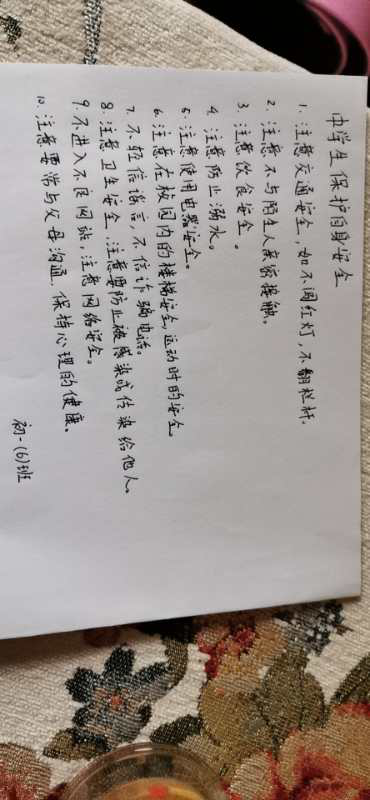 中学生保护自身安全
1. 注意交通安全，如不闯红灯，不翻栏杆。
2. 注意不与陌生人亲密接触。
3. 注意饮食安全。
4. 注意防止溺水。
5. 注意使用电器安全。
6. 注意在校园内的楼梯安全，运动时的安全
7. 不轻信谣言，不信诈骗电话
8. 注意卫生安全，注意要防止被感染或传染给他人。
9. 不进入不良网站，注意网络安全。
10. 注意要常与父母沟通，保持心理的健康。
初一(6)班